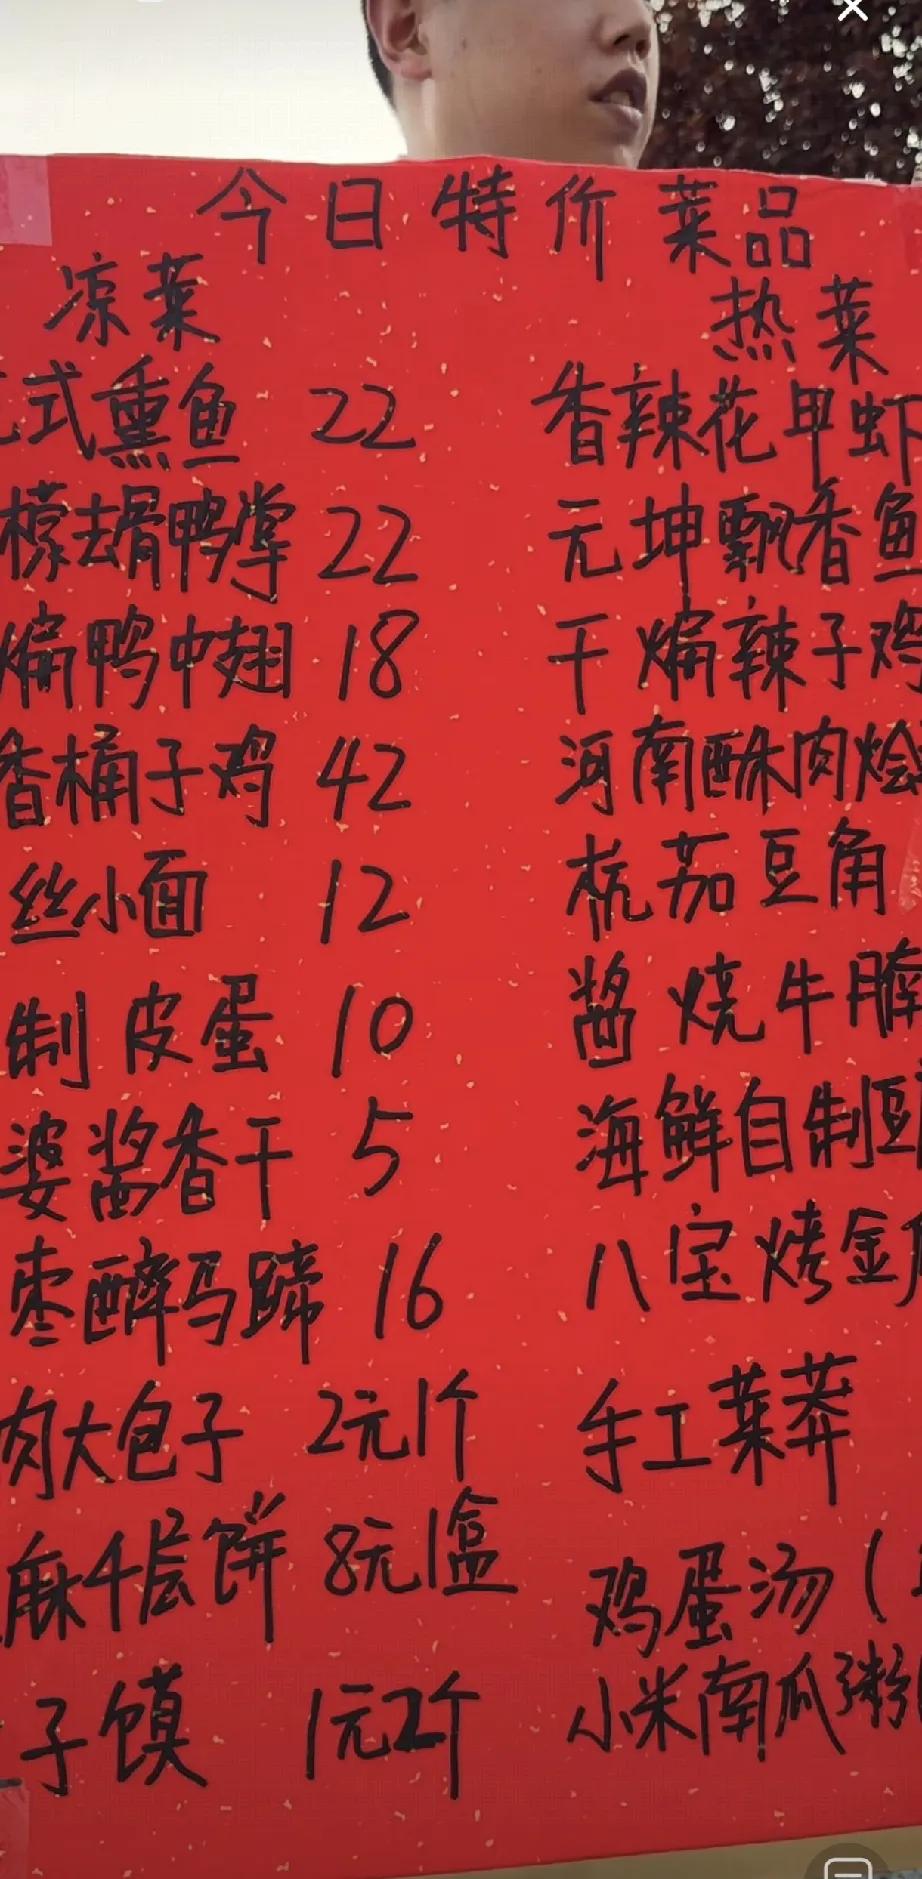 今日特价菜品
凉菜
式熏鱼 22
檬去骨鸭掌 22
煸鸭中翅 18
香桶子鸡 42
丝小面 12
制皮蛋 10
婆酱香干 5
枣醉马蹄 16
肉大包子 2元1个
麻千层饼 8元1盒
子馍 1元2个
热菜
香辣花甲虾
元坤飘香鱼
干煸辣子鸡
河南酥肉烩
杭茄豆角
酱烧牛腩
海鲜自制豆
八宝烤金
手工菜莽
鸡蛋汤(
小米南瓜粥